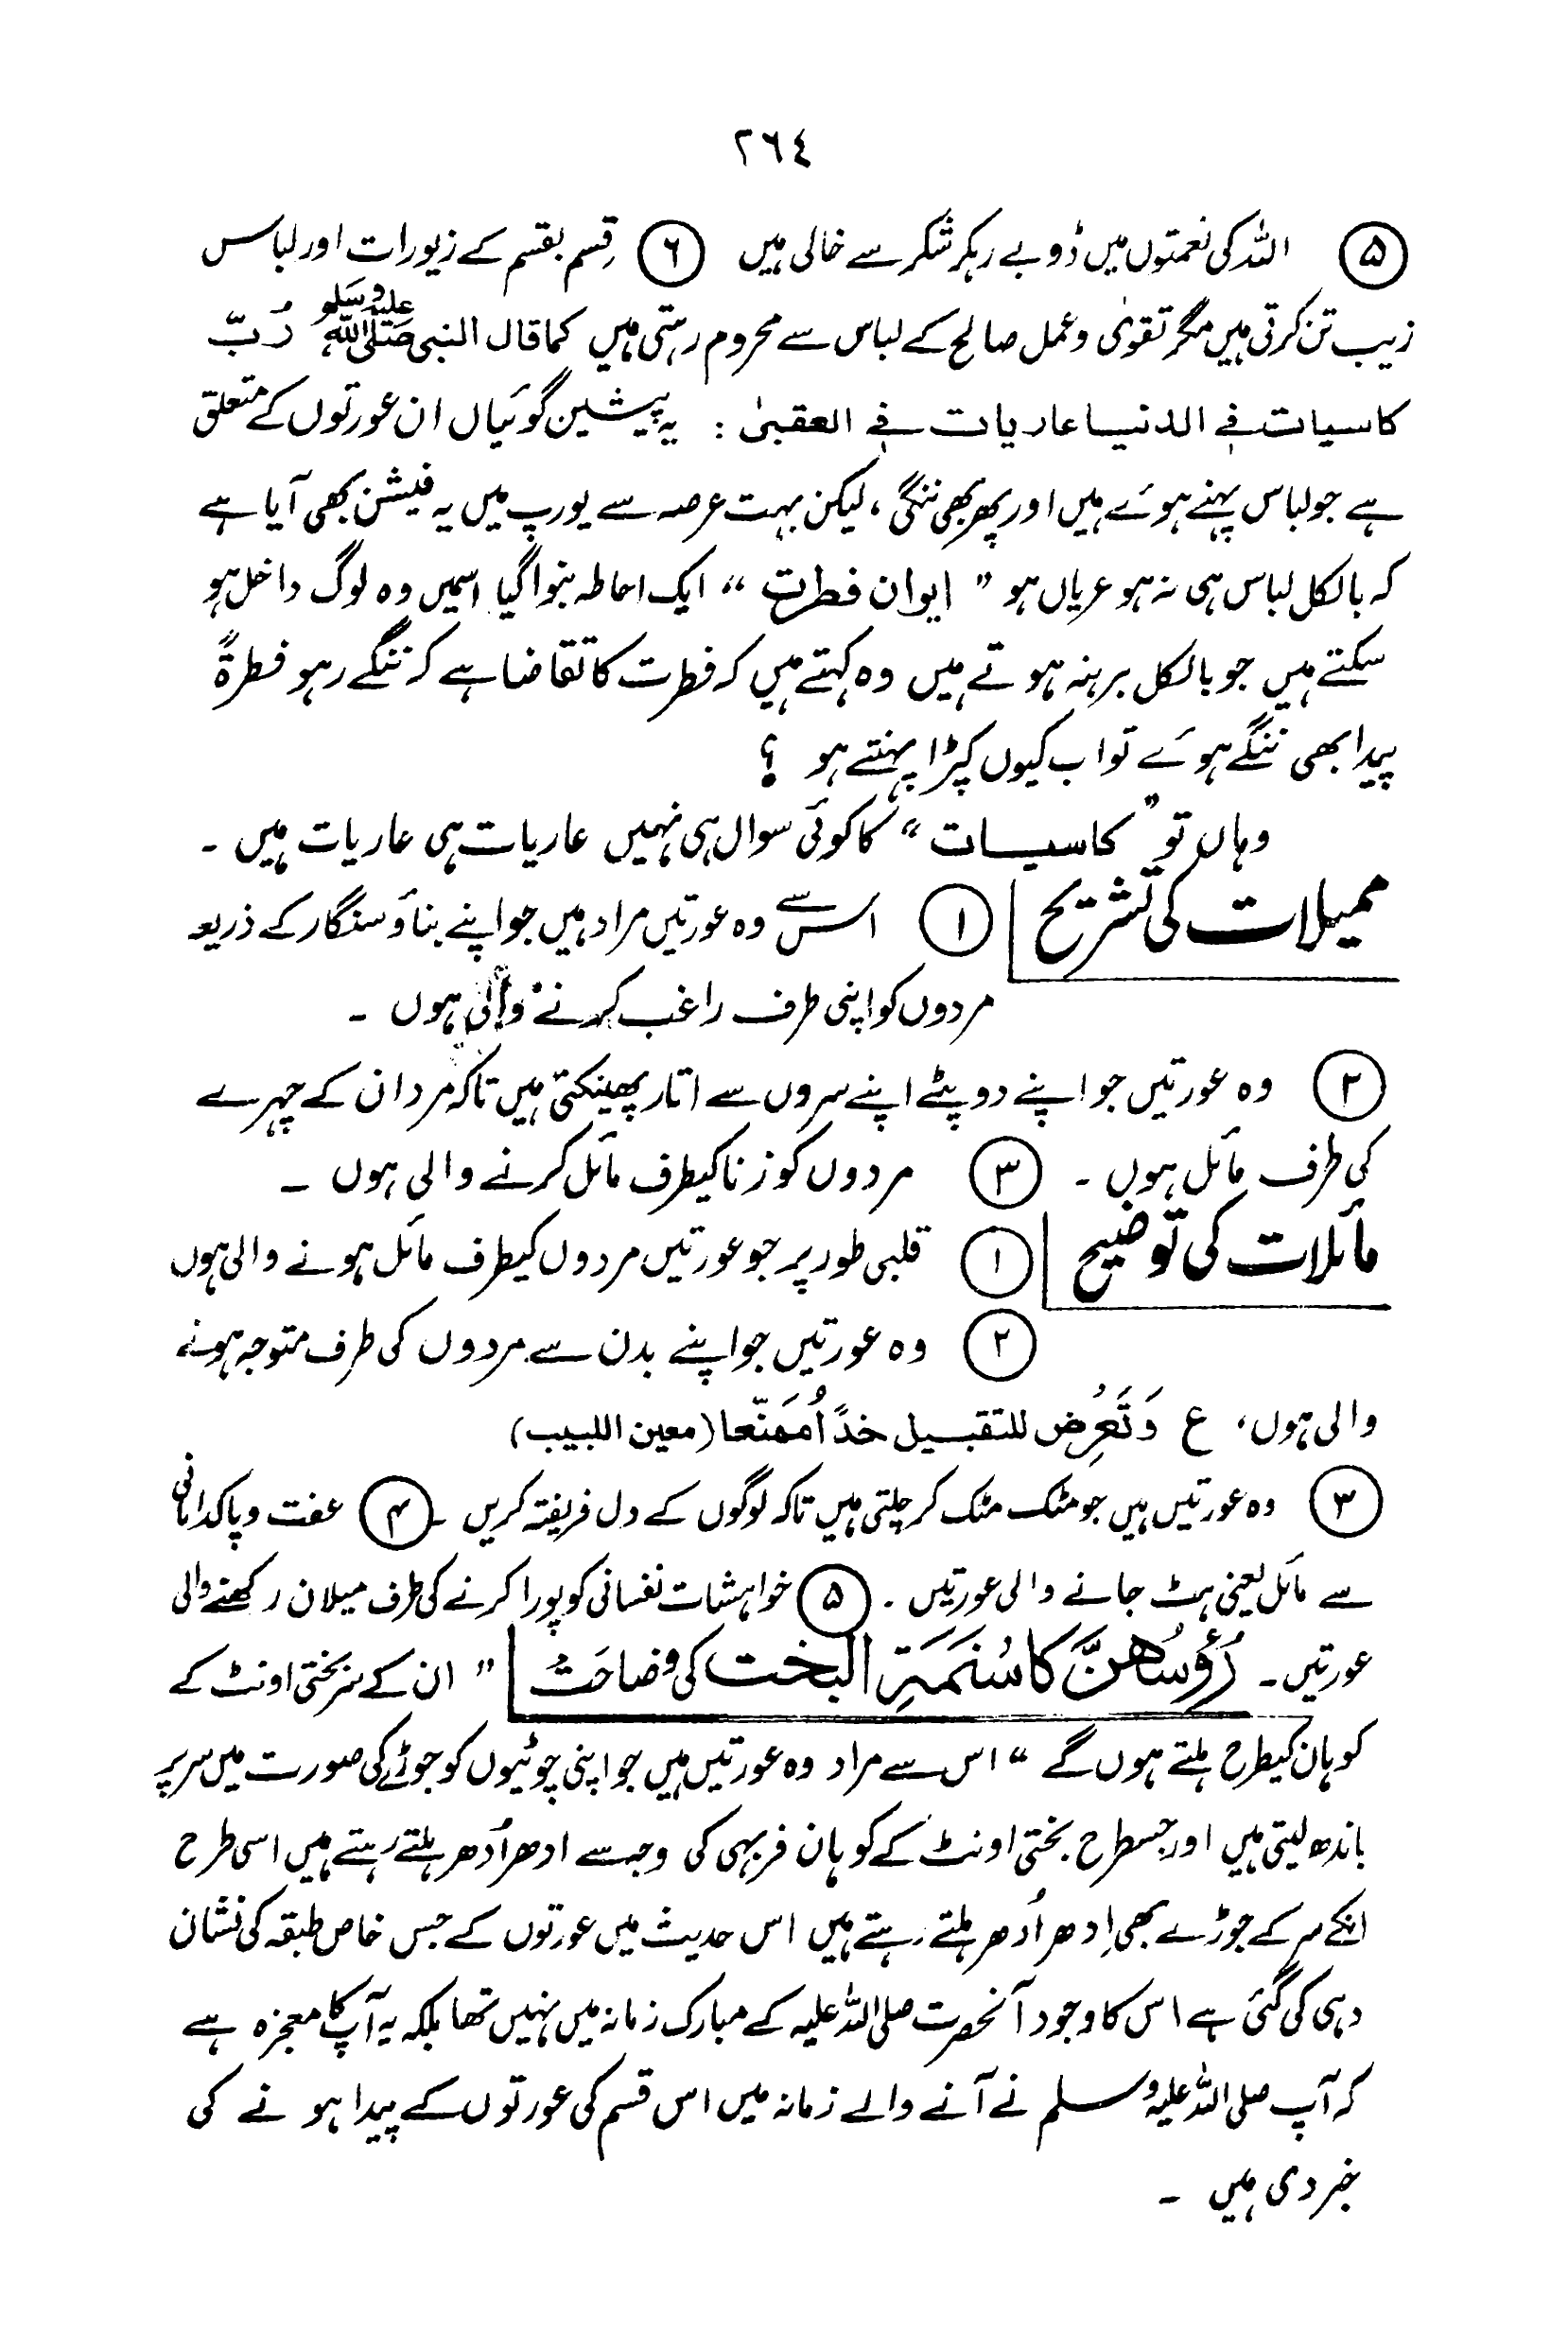 ٢٦٤
۵ اللہ کی نعمتوں میں ڈوبے رہکر شکر سے خالی ہیں ٦ قِسم بقسم کے زیورات اور لباس
زیب تن کرتی ہیں مگر تقویٰ وعمل صالح کے لباس سے محروم رہتی ہیں کما قال النبی صلی اللہ علیہ وسلم رُبّ
کاسیات فی الدنیا عاریات فی العقبیٰ : یہ پیشین گوئیاں ان عورتوں کے متعلق
ہے جو لباس پہنے ہوئے ہیں اور پھر بھی ننگی ، لیکن بہت عرصہ سے یورپ میں یہ فیشن بھی آیا ہے
کہ بالکل لباس ہی نہ ہو عریاں ہو " ایوان فطرت " ایک احاطہ بنوا گیا اسمیں وہ لوگ داخل ہو
سکتے ہیں جو بالکل برہنہ ہوتے ہیں وہ کہتے ہیں کہ فطرت کا تقاضا ہے کہ ننگے رہو فطرۃً
پیدا بھی ننگے ہوئے تو اب کیوں کپڑا پہنتے ہو ؟
وہاں تو " کاسیات " کا کوئی سوال ہی نہیں عاریات ہی عاریات ہیں ۔
ممیلات کی تشریح ١ اس سے وہ عورتیں مراد ہیں جو اپنے بناؤ سنگار کے ذریعہ
مردوں کو اپنی طرف راغب کرنے والی ہوں ۔
٢ وہ عورتیں جو اپنے دوپٹے اپنے سروں سے اتار پھینکتی ہیں تاکہ مرد ان کے چہرے
کی طرف مائل ہوں ۔ ٣ مردوں کو زنا کیطرف مائل کرنے والی ہوں ۔
مائلات کی توضیح ١ قلبی طور پر جو عورتیں مردوں کیطرف مائل ہونے والی ہوں
٢ وہ عورتیں جو اپنے بدن سے مردوں کی طرف متوجہ ہونے
والی ہوں، ع وَتَعرِض للتقبیل خدًا مُمَنّعا (معین اللبیب)
٣ وہ عورتیں ہیں جو مٹک مٹک کر چلتی ہیں تاکہ لوگوں کے دل فریفتہ کریں ۔ ۴ عفت و پاکدامانی
سے مائل یعنی ہٹ جانے والی عورتیں ۔ ۵ خواہشات نفسانی کو پورا کرنے کی طرف میلان رکھنے والی
عورتیں ۔ رُؤُسُھنَّ کَاَسْنَمَۃِ البخت کی وضاحت " ان کے سر بختی اونٹ کے
کوہان کیطرح ہلتے ہوں گے " اس سے مراد وہ عورتیں ہیں جو اپنی چوٹیوں کو جوڑے کی صورت میں سر پر
باندھ لیتی ہیں اور جسطرح بختی اونٹ کے کوہان فربہی کی وجہ سے ادھر اُدھر ہلتے رہتے ہیں اسی طرح
انکے سر کے جوڑے بھی اِدھر اُدھر ہلتے رہتے ہیں اس حدیث میں عورتوں کے جس خاص طبقہ کی نشان
دہی کی گئی ہے اس کا وجود آنحضرت صلی اللہ علیہ کے مبارک زمانہ میں نہیں تھا بلکہ یہ آپ کا معجزہ ہے
کہ آپ صلی اللہ علیہ وسلم نے آنے والے زمانہ میں اس قسم کی عورتوں کے پیدا ہونے کی
خبر دی ہیں ۔